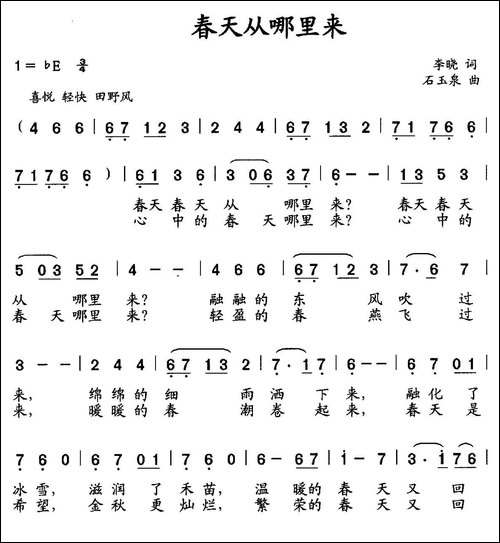 春天从哪里来
1= ♭E 3/4
李晓 词
石玉泉 曲
喜悦 轻快 田野风
( 4 6 6 | 67 12 3 | 2 4 4 | 67 13 2 | 71 76 6 |
7176 6 ) | 61 3 6 | 3 06 37 | 6 - - | 13 5 3 |
春天 春 天 从 哪里 来? 春天 春天
心 中的 春 天哪里 来? 心 中的
5 03 52 | 4 - - | 4 6 6 | 67 12 3 | 7· 6 7 |
从 哪里 来? 融融的 东 风吹 过
春 天哪里 来? 轻盈的 春 燕飞 过
3 - - | 2 4 4 | 67 13 2 | 7· 17 | 6 - - | 67 01 |
来, 绵绵的 细 雨 洒 下 来, 融化 了
来, 暖暖的 春 潮 卷 起 来, 春天 是
7 6 0 | 67 01 | 7 6 0 | 6 - 67 | 1 - 7 | 3· 1 76 |
冰雪, 滋润 了 禾苗, 温 暖的 春 天 又 回
希望, 金秋 更 灿烂, 繁 荣的 春 天 又 回